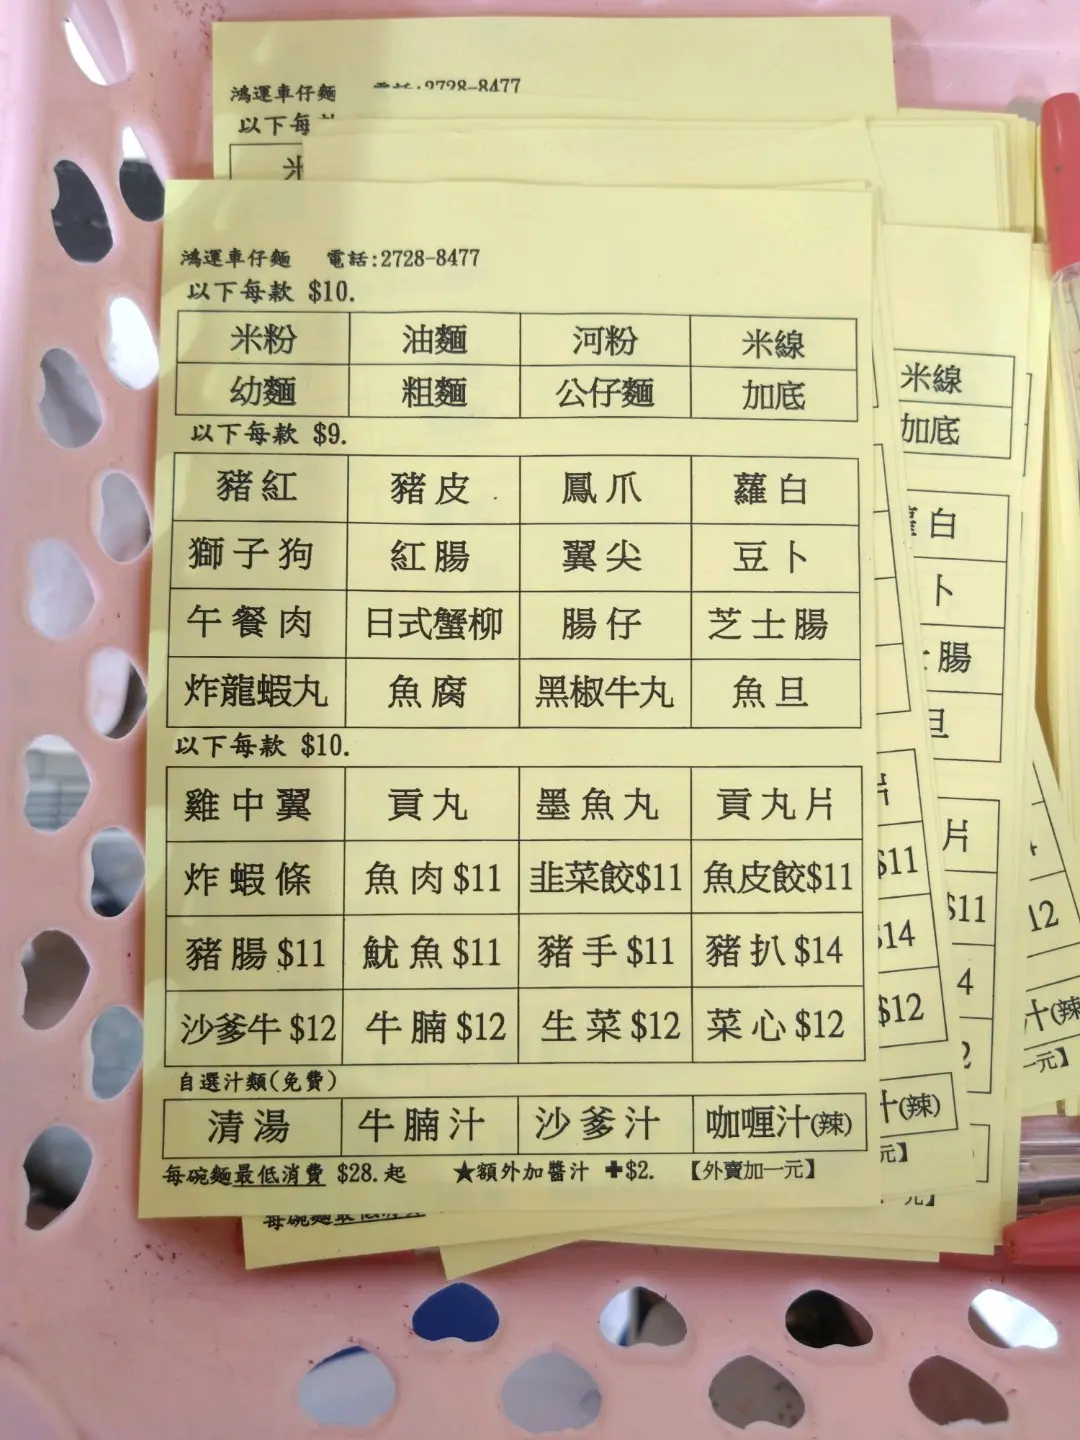 鴻運車仔麵 電話:2728-8477
以下每
米
鴻運車仔麵 電話:2728-8477
以下每款 $10.
米粉 油麵 河粉 米線
幼麵 粗麵 公仔麵 加底
以下每款 $9.
豬紅 豬皮 鳳爪 蘿白
獅子狗 紅腸 翼尖 豆卜
午餐肉 日式蟹柳 腸仔 芝士腸
炸龍蝦丸 魚腐 黑椒牛丸 魚旦
以下每款 $10.
雞中翼 貢丸 墨魚丸 貢丸片
炸蝦條 魚肉$11 韭菜餃$11 魚皮餃$11
豬腸$11 魷魚$11 豬手$11 豬扒$14
沙爹牛$12 牛腩$12 生菜$12 菜心$12
自選汁類(免費)
清湯 牛腩汁 沙爹汁 咖喱汁(辣)
每碗麵最低消費 $28.起 ★額外加醬汁 ✚$2. 【外賣加一元】
米線
加底
白
卜
腸
旦
片
$11
$14
$12
汁(辣)
元】
片
$11
4
2
元】
12
汁(辣
一元】
每碗麵最低消